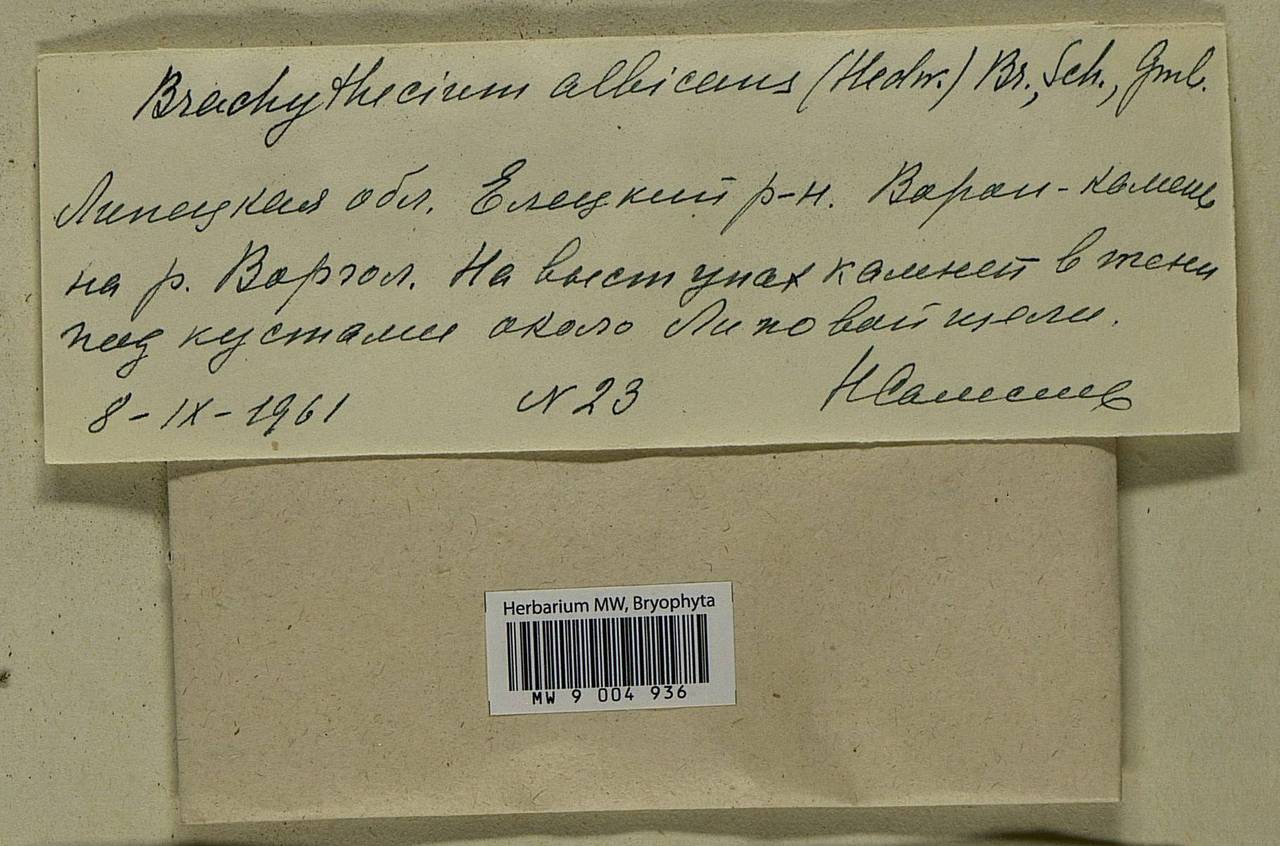 Brachythecium albicans (Hedw.) Br., Sch., Gmb.
Липецкая обл. Елецкий р-н. Ворон-камень
на р. Воргол. На выступах камней в тени
под кустами около Липовой щели.
8-IX-1961 N 23
Herbarium MW, Bryophyta
MW 9 004 936